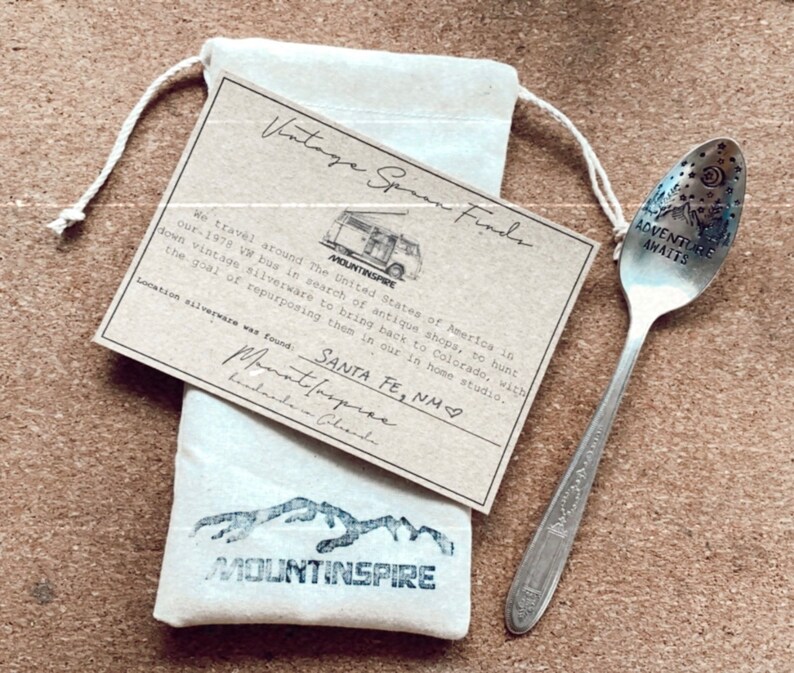 Vintage Spoon Finds
MOUNTINSPIRE
We travel around The United States of America in
our 1978 VW bus in search of antique shops, to hunt
down vintage silverware to bring back to Colorado, with
the goal of repurposing them in our in home studio.
Location silverware was found: SANTA FE, NM♡
MountInspire
handmade in Colorado
MOUNTINSPIRE
ADVENTURE
AWAITS